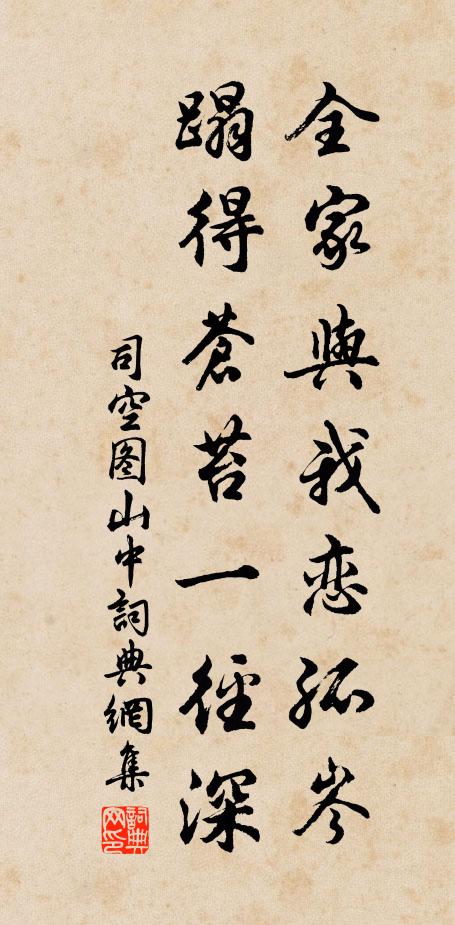 全家與我恋孤岑
蹋得蒼苔一徑深
司空图山中詞典網集
詞典网印